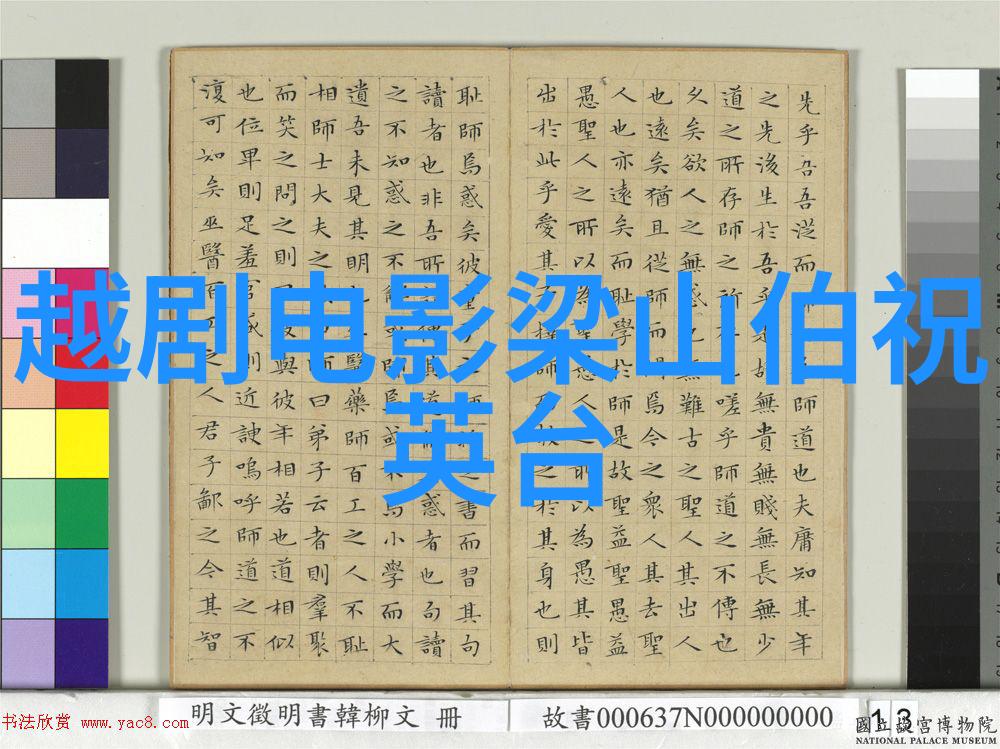 越剧电影梁山伯祝
英台
先乎吾吾從而師之吾師道也夫庸知其年
之先後生於吾乎是故無貴無賤無長無少
道之所存師之所存也嗟乎師道之不傳也
久矣欲人之無惑也無難古之聖人其出人
也遠矣猶且從師而問焉今之衆人其去聖
人也亦遠矣而恥學於師是故聖益聖愚益
愚聖人之所以為聖愚人之所以為愚其皆
出於此乎愛其子擇師而教之於其身也則
恥師焉惑矣彼童子之師授之書而習其句
讀者也非吾所謂傳其道解其惑者也句讀
之不知惑之不解或師焉或不焉小學而大
遺吾未見其明也巫醫藥師百工之人不恥
相師士大夫之族曰師曰弟子云者則羣聚
而笑之問之則曰彼與彼年相若也道相似
也位卑則足羞官盛則近諛嗚呼師道之不
復可知矣巫醫百工之人君子鄙之今其智
明文徵明書韓柳文 冊
故書000637N000000000
13
书法欣赏 www.yac8.com
國立故宮博物院
NATIONAL PALACE MUSEUM